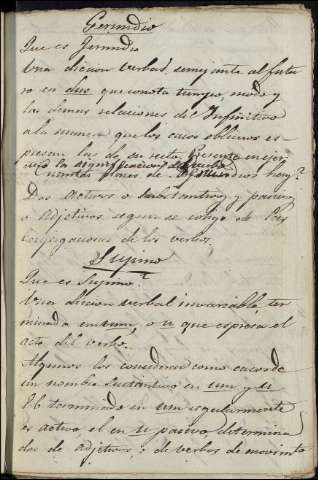 Gerundio
Que es Gerundio
Una diccion verbal, semejante al futu
ro en dus que connota tiempo, modo y
las demas relaciones del Infinitivo
a la manera que los casos oblicuos es-
presan las de su recto
la significacion
Cuantas clases de Gerundios hay?
Dos activos o substantivos y pasivos
o Adjetivos segun se coligen de las
Conjugaciones de los verbos.
Supino
Que es Supino?
Una diccion verbal invariable, ter
minada en um, o u que espresa el
acto del verbo.
Algunos los consideran como casos de
un nombre sustantivo en um y u
El terminado en um regularmente
es activo el en u pasivo, determina
dos de adjetivos, o de verbos de movimto